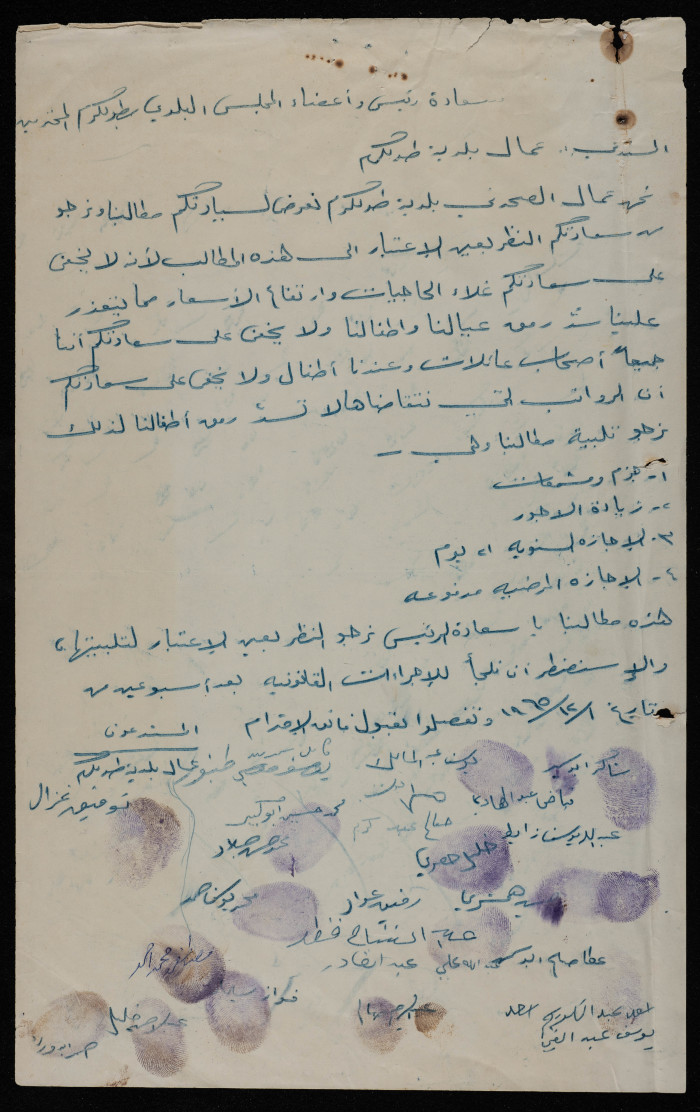 سعادة رئيس وأعضاء المجلس البلدي بطولكرم المحترمين
المستدعي: عمال بلدية طولكرم
نحن عمال الصحه في بلدية طولكرم نعرض لسيادتكم مطالبنا ونرجو
من سعادتكم النظر بعين الإعتبار الى هذه المطالب لأنه لا يخفى
على سعادتكم غلاء الحاجيات وارتفاع الأسعار مما يتعذر
علينا سدّ رمق عيالنا واطفالنا ولا يخفى على سعادتكم أننا
جميعاً أصحاب عائلات وعندنا أطفال ولا يخفى على سعادتكم
أن الرواتب التي نتقاضاها لا تسدّ رمق أطفالنا لذلك
نرجو تلبية مطالبنا وهي -
١- جزم ومشمعات
٢- زيادة الاجور
٣- الإجازه السنويه ٢١ يوم
٤- الإجازه المرضيه مدفوعه
هذه مطالبنا يا سعادة الرئيس نرجو النظر بعين الإعتبار لتلبيتها
والا سنضطر ان نلجأ للإجراءات القانونيه بعد أسبوعين من
تاريخ ١٩٦٥/١٢/١ وتفضلوا بقبول فائق الإحترام المستدعون
عمال بلدية طولكرم
توفيق غزال
شاكر
يوسف عبد المالك
فياض عبد الهادي
محمد حسين ابو بكر
صالح عبد
خليل
رفيق عواد
عبد الفتاح
عطا صالح
عبد القادر
مصطفى محمد احمد
فواز
عبد الرحيم
خليل
احمد عبد الكريم احمد
يوسف عبد الغني